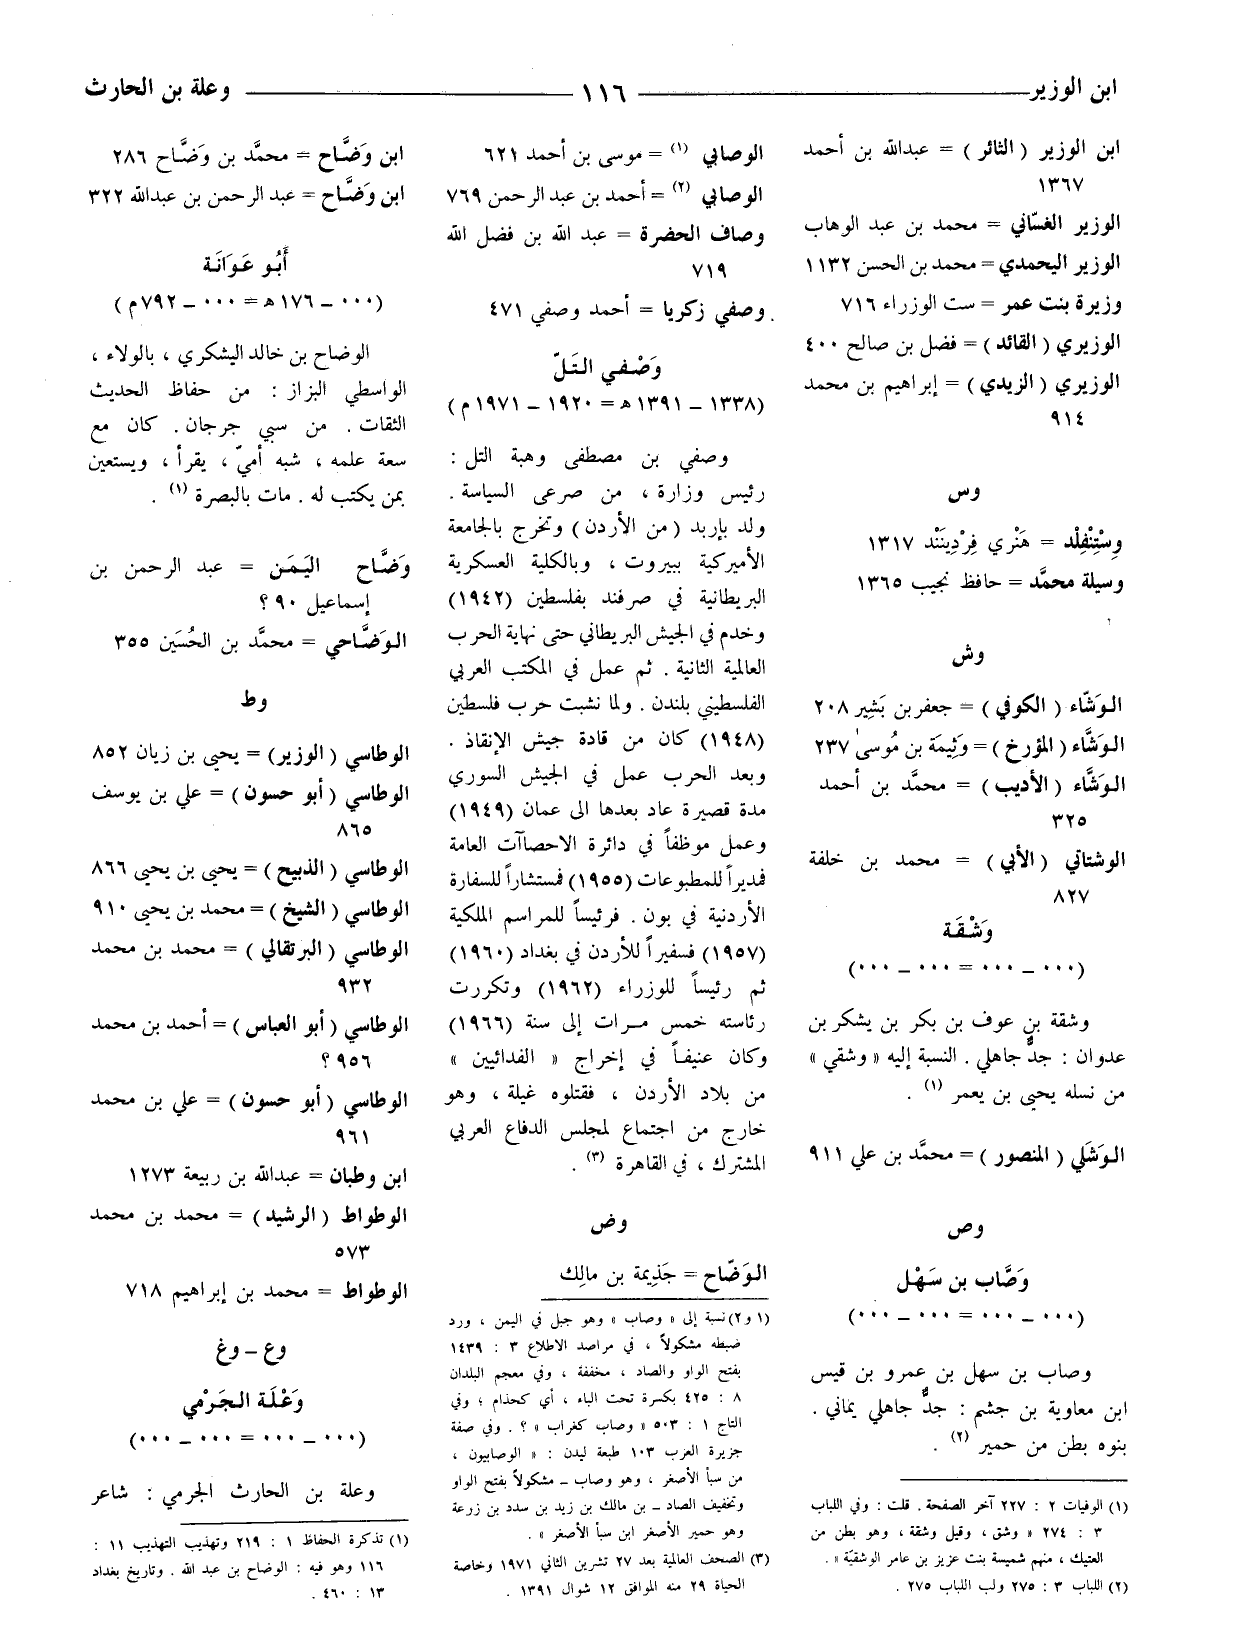 ابن الوزير ١١٦ وعلة بن الحارث
ابن الوزير ( الثائر ) = عبدالله بن أحمد
١٣٦٧
الوزير الغسّاني = محمد بن عبد الوهاب
الوزير اليحمدي = محمد بن الحسن ١١٣٢
وزيرة بنت عمر = ست الوزراء ٧١٦
الوزيري ( القائد ) = فضل بن صالح ٤٠٠
الوزيري ( الزيدي ) = إبراهيم بن محمد
٩١٤
وس
وِسْتِنْفِلْد = هَنْري فِرْدِينَنْد ١٣١٧
وسيلة محمَّد = حافظ نجيب ١٣٦٥
وش
الوَشّاء ( الكوفي ) = جعفر بن بَشِير ٢٠٨
الوَشَّاء ( المؤرخ ) = وَثِيمَة بن مُوسىٰ ٢٣٧
الوَشَّاء ( الأديب ) = محمَّد بن أحمد
٣٢٥
الوشتاتي ( الأبي ) = محمد بن خلفة
٨٢٧
وَشْقَة
(٠٠٠ ــ ٠٠٠ = ٠٠٠ ــ ٠٠٠)
وشقة بن عوف بن بكر بن يشكر بن
عدوان : جدٌّ جاهلي . النسبة إليه « وشقي »
من نسله يحيى بن يعمر (١) .
الوَشَلي ( المنصور ) = محمَّد بن علي ٩١١
وص
وَصَّاب بن سَهْل
(٠٠٠ ــ ٠٠٠ = ٠٠٠ ــ ٠٠٠)
وصاب بن سهل بن عمرو بن قيس
ابن معاوية بن جشم : جدٌّ جاهلي يماني .
بنوه بطن من حمير (٢) .
(١) الوفيات ٢ : ٢٢٧ آخر الصفحة . قلت : وفي اللباب
٣ : ٢٧٤ « وشق ، وقيل وشقة ، وهو بطن من
العتيك ، منهم شميسة بنت عزيز بن عامر الوشقيّة » .
(٢) اللباب ٣ : ٢٧٥ ولب اللباب ٢٧٥ .
الوصابي (١) = موسى بن أحمد ٦٢١
الوصابي (٢) = أحمد بن عبد الرحمن ٧٦٩
وصاف الحضرة = عبد الله بن فضل الله
٧١٩
وصفي زكريا = أحمد وصفي ٤٧١
وَصْفي التَلّ
(١٣٣٨ ــ ١٣٩١ ه = ١٩٢٠ ــ ١٩٧١ م )
وصفي بن مصطفى وهبة التل :
رئيس وزارة ، من صرعى السياسة .
ولد بإربد ( من الأردن ) وتخرج بالجامعة
الأميركية ببيروت ، وبالكلية العسكرية
البريطانية في صرفند بفلسطين (١٩٤٢)
وخدم في الجيش البريطاني حتى نهاية الحرب
العالمية الثانية . ثم عمل في المكتب العربي
الفلسطيني بلندن . ولما نشبت حرب فلسطين
(١٩٤٨) كان من قادة جيش الإنقاذ .
وبعد الحرب عمل في الجيش السوري
مدة قصيرة عاد بعدها الى عمان (١٩٤٩)
وعمل موظفاً في دائرة الاحصاآت العامة
فمديراً للمطبوعات (١٩٥٥) فمستشاراً للسفارة
الأردنية في بون . فرئيساً للمراسم الملكية
(١٩٥٧) فسفيراً للأردن في بغداد (١٩٦٠)
ثم رئيساً للوزراء (١٩٦٢) وتكررت
رئاسته خمس مرات إلى سنة (١٩٦٦)
وكان عنيفاً في إخراج « الفدائيين »
من بلاد الأردن ، فقتلوه غيلة ، وهو
خارج من اجتماع لمجلس الدفاع العربي
المشترك ، في القاهرة (٣) .
وض
الوَضّاح = جَذِيمة بن مالِك
(١ و٢) نسبة إلى « وصاب » وهو جبل في اليمن ، ورد
ضبطه مشكولاً ، في مراصد الاطلاع ٣ : ١٤٣٩
بفتح الواو والصاد ، مخففة ، وفي معجم البلدان
٨ : ٤٢٥ بكسرة تحت الباء ، أي كحذام ؛ وفي
التاج ١ : ٥٠٣ « وصاب كغراب » ؟ . وفي صفة
جزيرة العرب ١٠٣ طبعة ليدن : « الوصابيون ،
من سبأ الأصغر ، وهو وصاب ــ مشكولاً بفتح الواو
وتخفيف الصاد ــ بن مالك بن زيد بن سدد بن زرعة
وهو حمير الأصغر ابن سبأ الأصغر » .
(٣) الصحف العالمية بعد ٢٧ تشرين الثاني ١٩٧١ وخاصة
الحياة ٢٩ منه الموافق ١٢ شوال ١٣٩١ .
ابن وَضَّاح = محمَّد بن وَضَّاح ٢٨٦
ابن وَضَّاح = عبد الرحمن بن عبدالله ٣٢٢
أَبُو عَوَانَة
(٠٠٠ ــ ١٧٦ ه = ٠٠٠ ــ ٧٩٢ م )
الوضاح بن خالد اليشكري ، بالولاء ،
الواسطي البزاز : من حفاظ الحديث
الثقات . من سبي جرجان . كان مع
سعة علمه ، شبه أميّ ، يقرأ ، ويستعين
بمن يكتب له . مات بالبصرة (١) .
وَضَّاح اليَمَن = عبد الرحمن بن
إسماعيل ٩٠ ؟
الوَضَّاحي = محمَّد بن الحُسَين ٣٥٥
وط
الوطاسي ( الوزير) = يحيى بن زيان ٨٥٢
الوطاسي ( أبو حسون ) = علي بن يوسف
٨٦٥
الوطاسي ( الذبيح ) = يحيى بن يحيى ٨٦٦
الوطاسي ( الشيخ ) = محمد بن يحيى ٩١٠
الوطاسي ( البرتقالي ) = محمد بن محمد
٩٣٢
الوطاسي ( أبو العباس ) = أحمد بن محمد
٩٥٦ ؟
الوطاسي ( أبو حسون ) = علي بن محمد
٩٦١
ابن وطبان = عبدالله بن ربيعة ١٢٧٣
الوطواط ( الرشيد ) = محمد بن محمد
٥٧٣
الوطواط = محمد بن إبراهيم ٧١٨
وع ــ وغ
وَعْلَة الجَرْمي
(٠٠٠ ــ ٠٠٠ = ٠٠٠ ــ ٠٠٠)
وعلة بن الحارث الجرمي : شاعر
(١) تذكرة الحفاظ ١ : ٢١٩ وتهذيب التهذيب ١١ :
١١٦ وهو فيه : الوضاح بن عبد الله . وتاريخ بغداد
١٣ : ٤٦٠ .